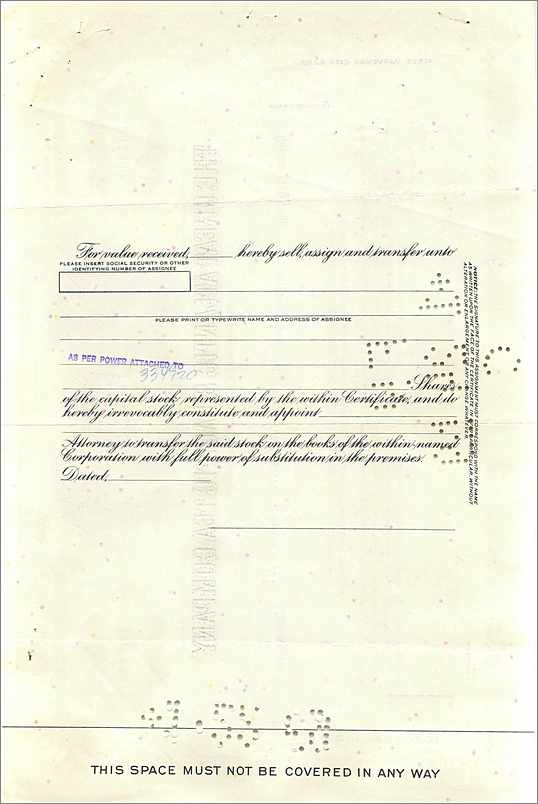 For value received, hereby sell, assign and transfer unto
PLEASE INSERT SOCIAL SECURITY OR OTHER
IDENTIFYING NUMBER OF ASSIGNEE
PLEASE PRINT OR TYPEWRITE NAME AND ADDRESS OF ASSIGNEE
AS PER POWER ATTACHED TO
334920
Shares
of the capital stock represented by the within Certificate, and do
hereby irrevocably constitute and appoint
Attorney to transfer the said stock on the books of the within named
Corporation with full power of substitution in the premises.
Dated,
NOTICE: THE SIGNATURE TO THIS ASSIGNMENT MUST CORRESPOND WITH THE NAME
AS WRITTEN UPON THE FACE OF THE CERTIFICATE IN EVERY PARTICULAR, WITHOUT
ALTERATION OR ENLARGEMENT OR ANY CHANGE WHATEVER.
THIS SPACE MUST NOT BE COVERED IN ANY WAY